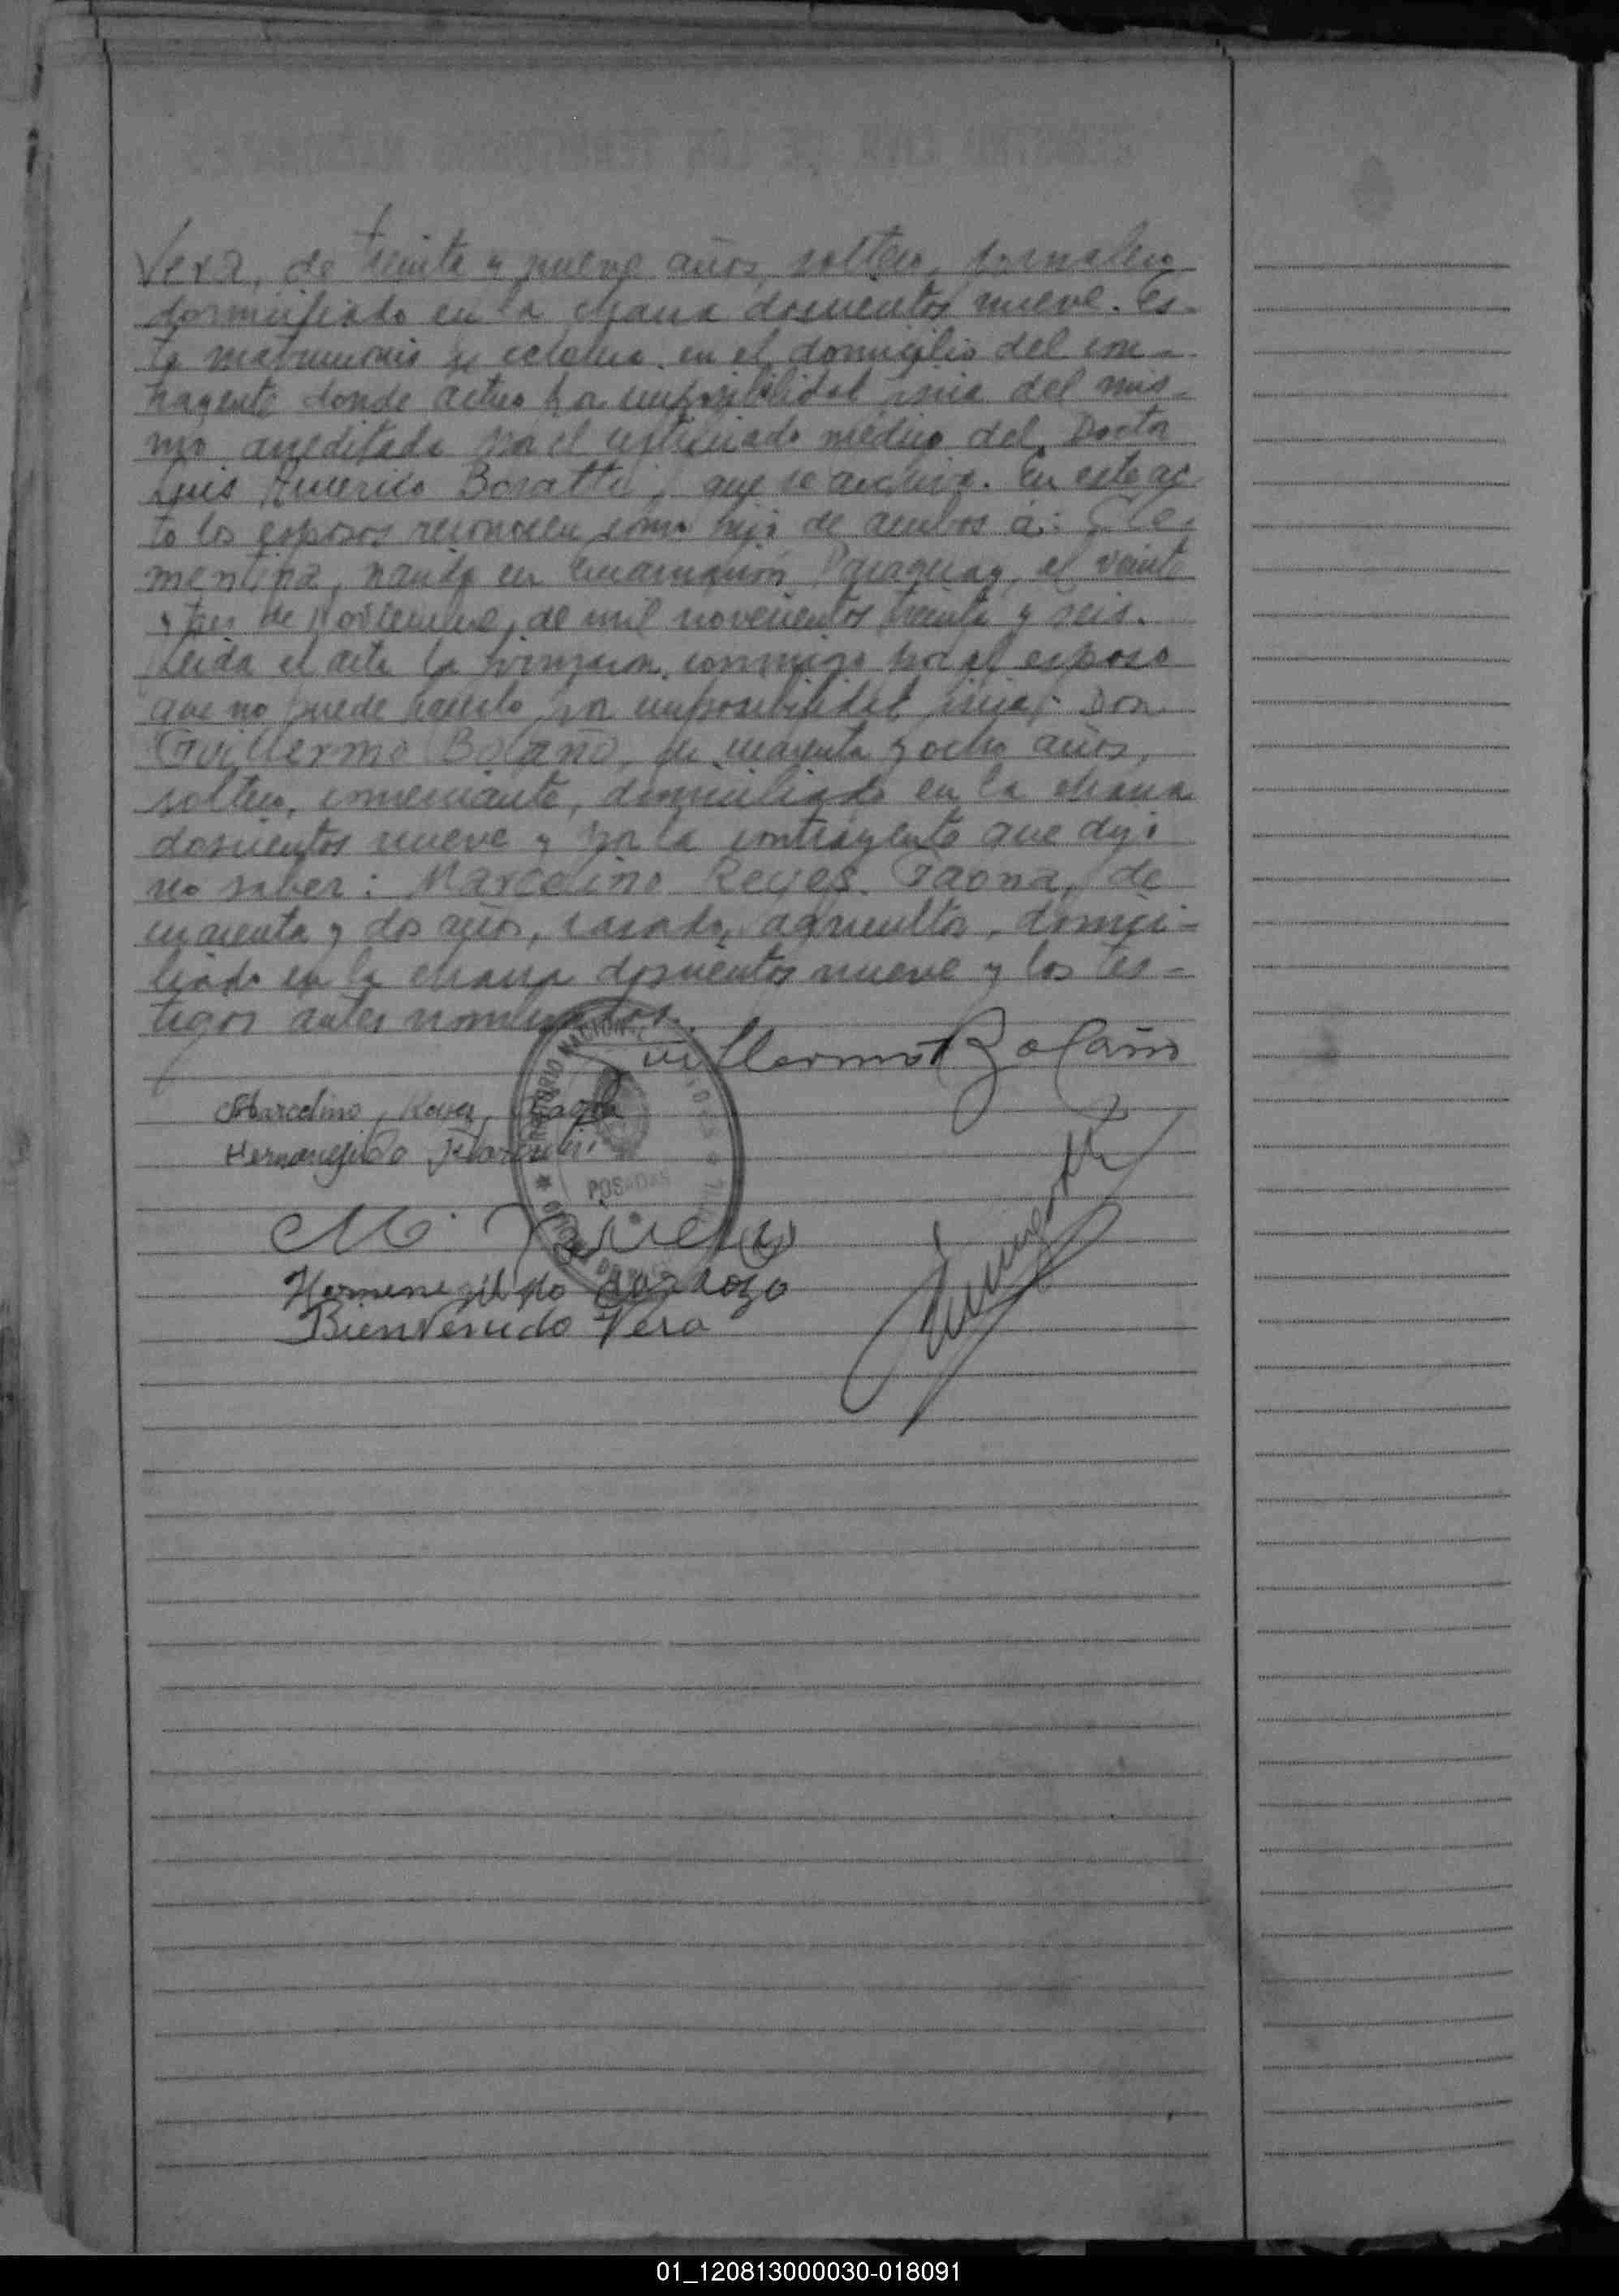 Vera, de treinta y nueve años, soltero, jornalero
domiciliado en la chacra doscientos nueve. Es-
te matrimonio se celebra en el domicilio del con-
trayente donde actuo por imposibilidad fisica del mis-
mo acreditada por el certificado médico del Doctor
Luis Americo Bonatti, que se archiva. En este ac-
to los esposos reconocen como hijo de ambos a: Cle-
mentina, nacida en Encarnación Paraguay, el veinte
y tres de Noviembre, de mil novecientos treinta y seis.
Leida el acta la firmaron conmigo por el esposo
que no puede hacerlo por imposibilidad fisica: Don
Guillermo Bolaño, de cuarenta y ocho años,
soltero, comerciante, domiciliado en la chacra
doscientos nueve y por la contrayente que dijo
no saber: Marcelino Reyes Gaona, de
cuarenta y dos años, casado, agricultor, domici-
liado en la chacra doscientos nueve y los tes-
tigos antes nombrados.
Guillermo Bolaño
Marcelino Reyes Gaona
POSADAS
Hermenegildo Cardozo
Bienvenido Vera
01_120813000030-018091